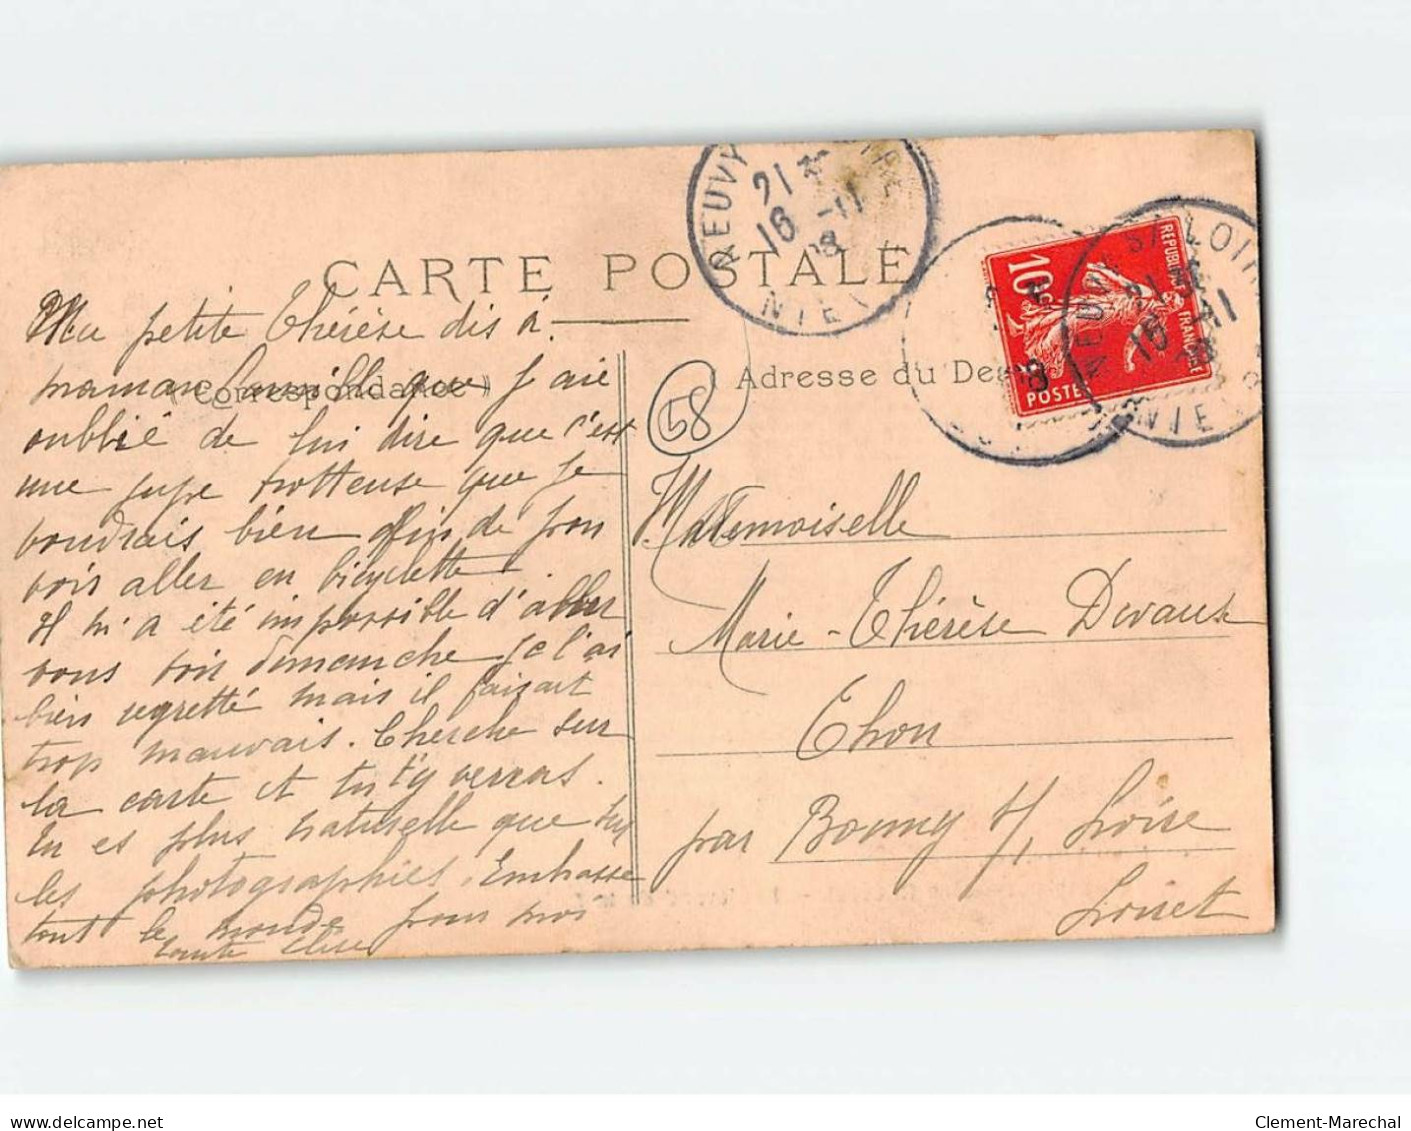 NEUVY LOIRE
21 30
16 -11
08
NIEV
CARTE POSTALE
REPUBLIQUE FRANCAISE
10
POSTES
NEUVY S/ LOIRE
16 -11
08
NIEV
8
Correspondance
Adresse du Des
58
Ma petite Thérèse dis à
maman Camille que j'aie
oublié de lui dire que c'est
une jupe trotteuse que je
voudrais bien afin de pou
voir aller en bicyclette
Il m'a été impossible d'aller
vous voir dimanche je l'ai
bien regretté mais il faisait
trop mauvais. Cherche sur
la carte et tu t'y verras.
Tu es plus naturelle que sur
les photographies. Embrasse
tout le monde pour moi
tante Elise
Mademoiselle
Marie-Thérèse Devaux
Thou
par Bonny s/ Loire
Loiret
Clement-Marechal